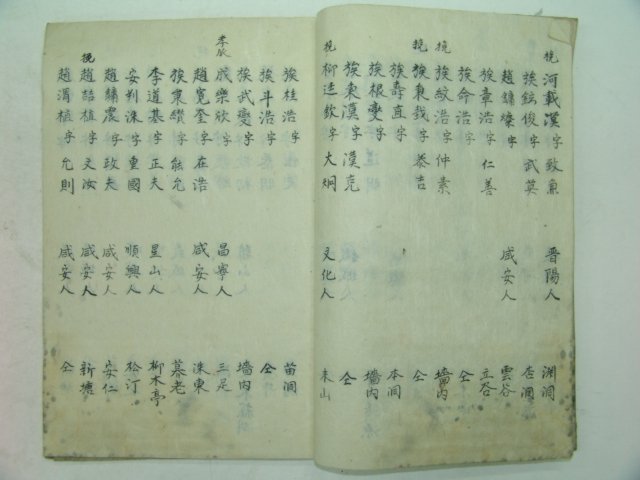 挽 河載漢 字 致兼 晋陽人 渊洞
族鉉俊 字 武英 杏洞
趙鏞燦 字 咸安人 雲谷
族章浩 字 仁善 立谷
族命浩 字 仝
挽 族紋浩 字 仲素 墻内
挽 族秉哉 字 泰吉 仝
族壽直 字 本洞
族根燮 字 墻内
族東漢 字 漢克 仝
挽 柳廷欽 字 大炯 文化人 朱山
族桂浩 字 苗洞
族斗浩 字 仝
族武燮 字 墻内
成樂欣 字 昌寧人 三足
趙寬奎 字 在浩 咸安人 洙東
族秉纉 字 能允 慕老
李道基 字 正夫 星山人 柳木亭
安判洙 字 重國 順興人 松汀
趙鏞震 字 政夫 咸安人 安仁
挽 趙喆植 字 文汝 咸安人 新塘
趙渭植 字 允則 咸安人 仝